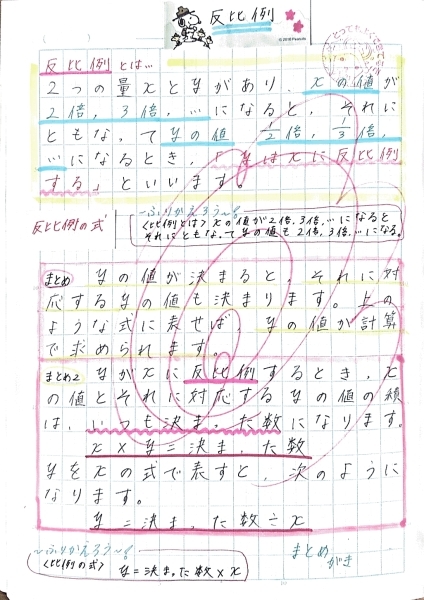 反比例
© 2016 Peanuts
反比例とは…
2つの量xとyがあり、xの値が
2倍,3倍,…になると,それに
ともなってyの値 1/2倍,1/3倍,
…になるとき,「yはxに反比例
する」といいます。
反比例の式
~ふりかえろう~♪
<比例とは>xの値が2倍,3倍,…になると
それにともなってyの値も2倍,3倍,…になる。
まとめ yの値が決まると,それに対
応するyの値も決まります。上の
ような式に表せば,yの値が計算
で求められます。
まとめ2 yがxに反比例するとき,x
の値とそれに対応するyの値の積
は,いつも決まった数になります。
x×y=決まった数
yをxの式で表すと,次のように
なります。
y=決まった数÷x
~ふりかえろう~♪
<比例の式> y=決まった数×x
まとめ
がき